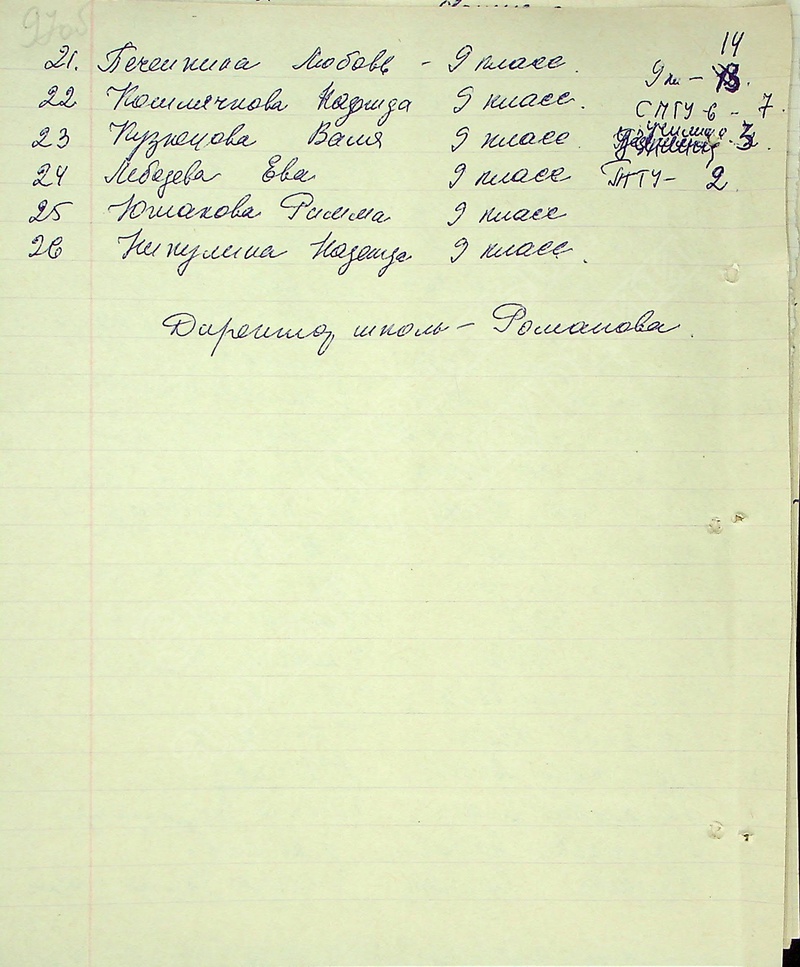 14
21. Печенкина Любовь - 9 класс. 9 кл -
22 Надежда 9 класс. СПТУ в - 7
23 Кузнецова Валя 9 класс. училище 3
24 Лебедева Ева 9 класс ТПТУ - 2
25 Южакова Римма 9 класс
26 Никулина Надежда 9 класс.
Директор школы - Романова.